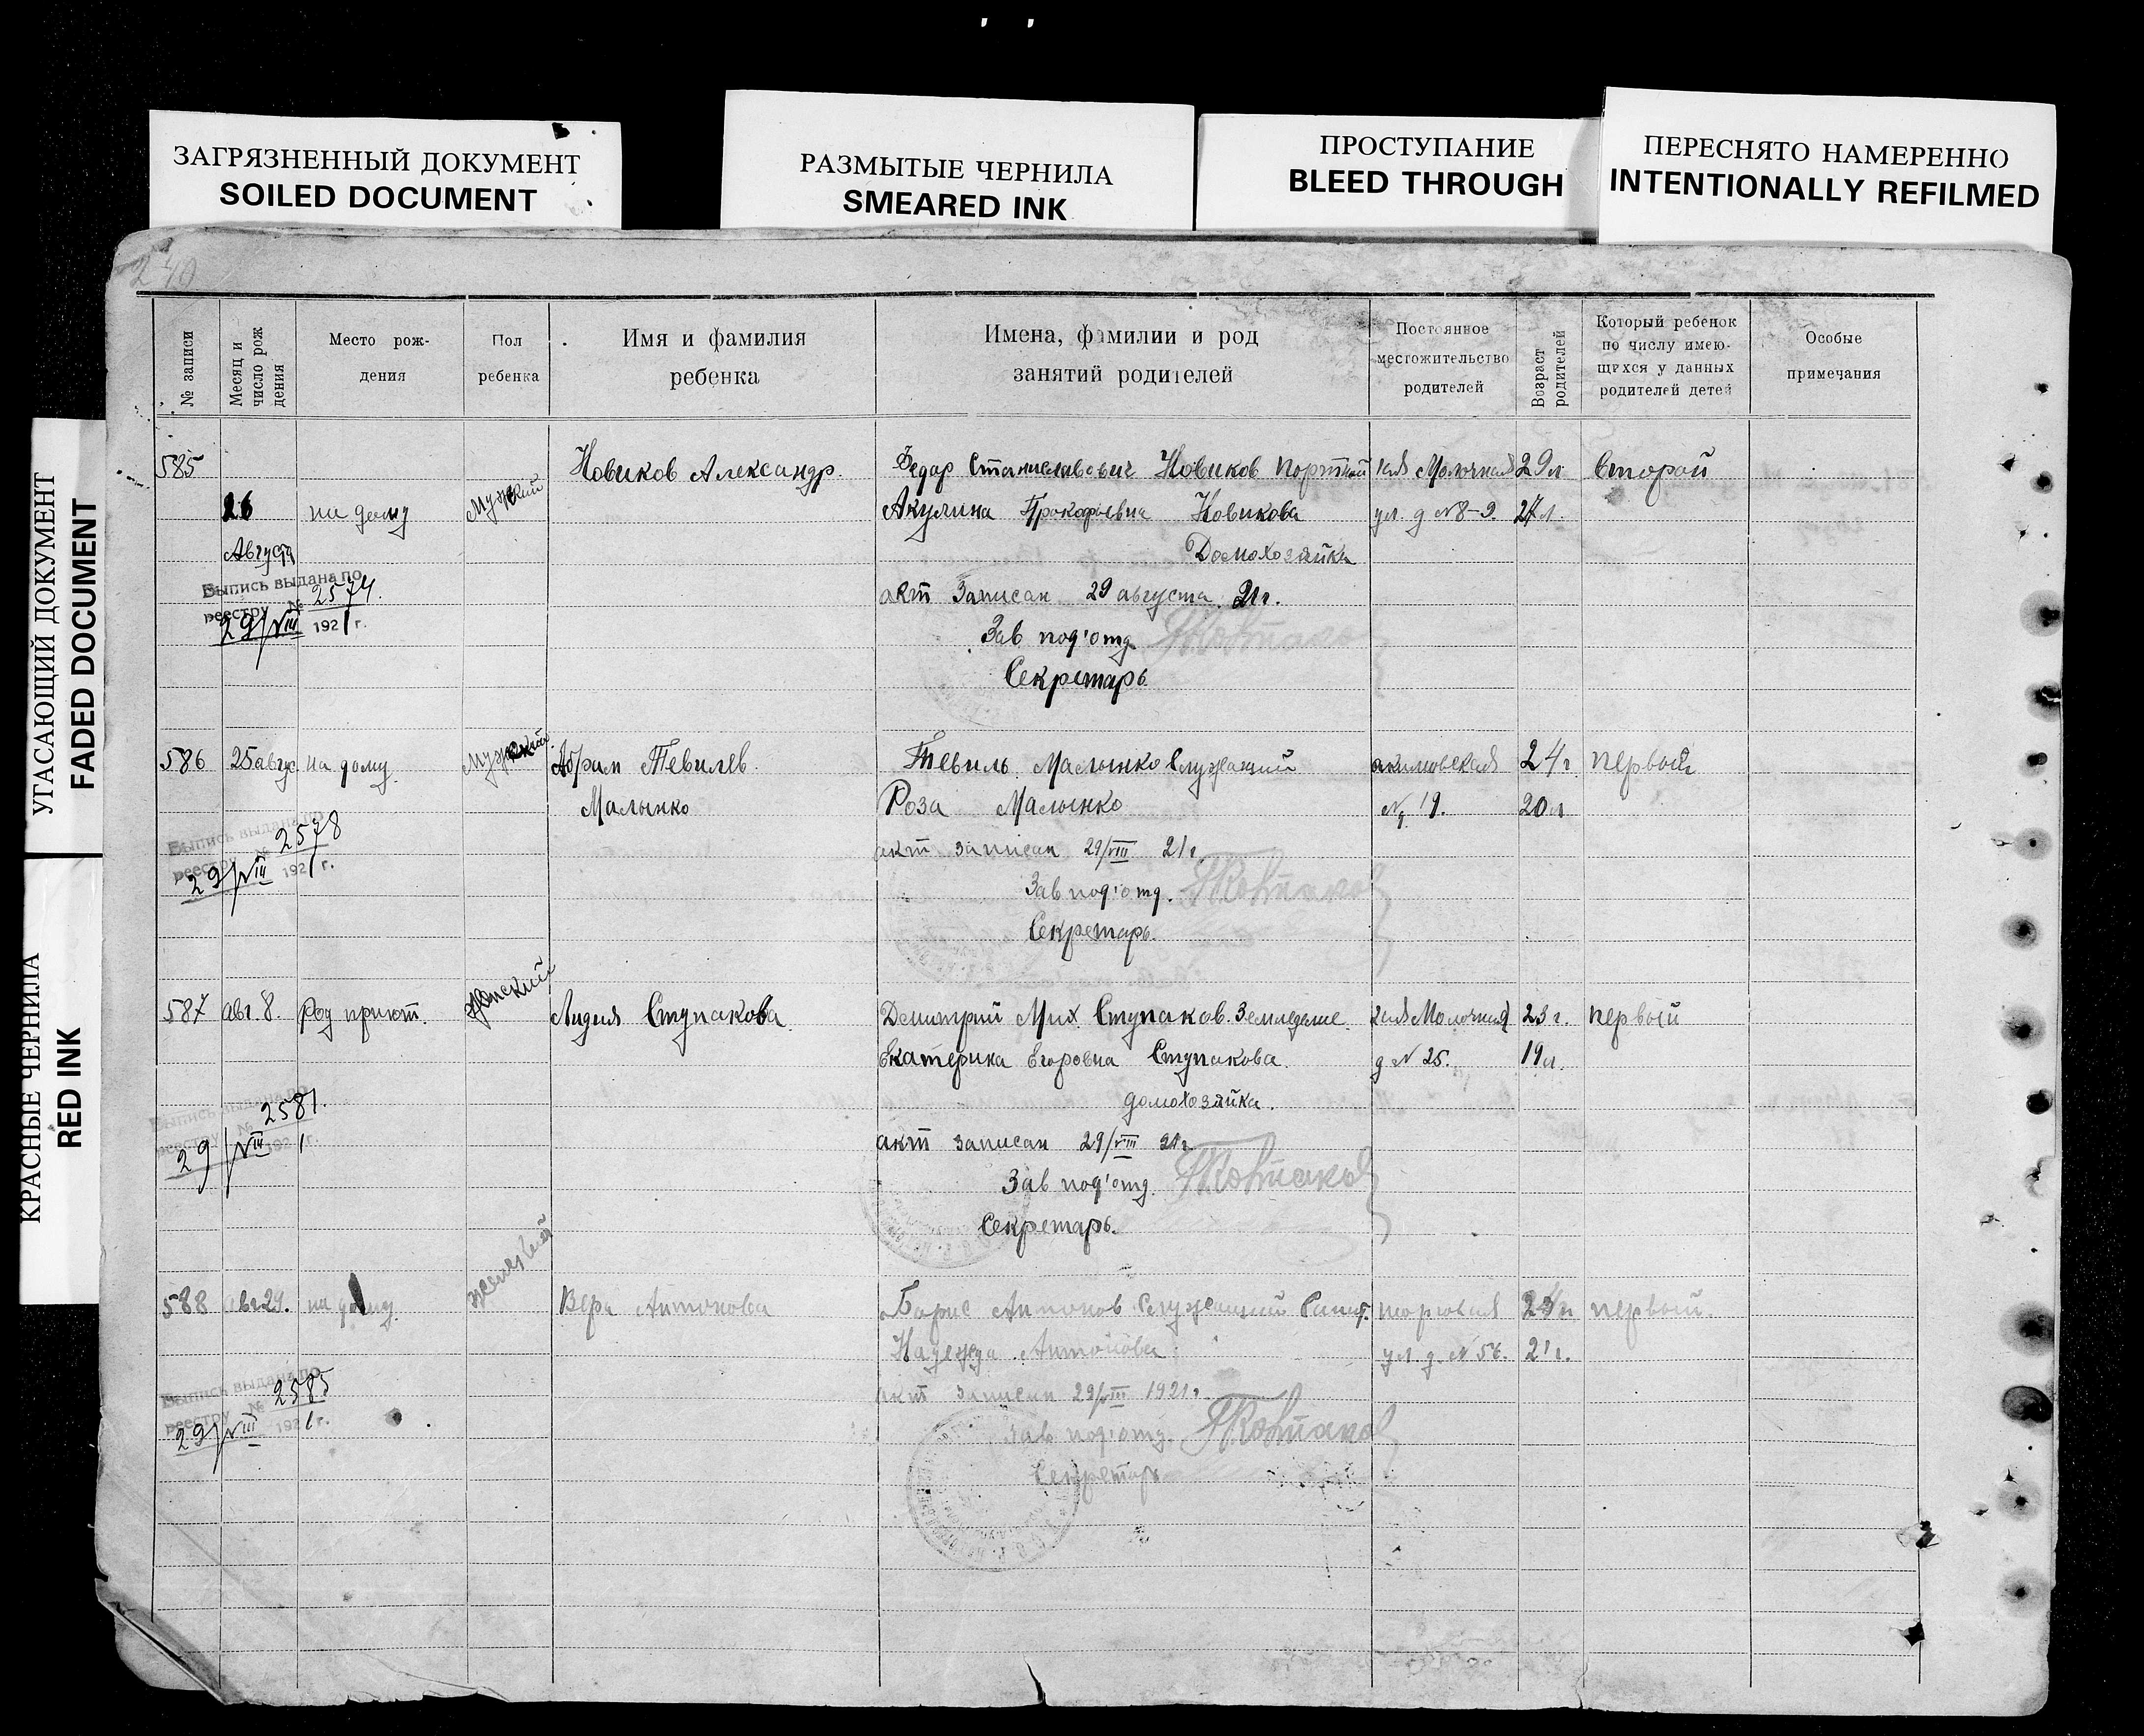 ЗАГРЯЗНЕННЫЙ ДОКУМЕНТ
SOILED DOCUMENT
РАЗМЫТЫЕ ЧЕРНИЛА
SMEARED INK
ПРОСТУПАНИЕ
BLEED THROUGH
ПЕРЕСНЯТО НАМЕРЕННО
INTENTIONALLY REFILMED
УГАСАЮЩИЙ ДОКУМЕНТ
FADED DOCUMENT
КРАСНЫЕ ЧЕРНИЛА
RED INK
240
№ записи
Месяц и
число рож
дения
Место рож-
дения
Пол
ребенка
Имя и фамилия
ребенка
Имена, фамилии и род
занятий родителей
Постоянное
местожительство
родителей
Возраст
родителей
Который ребенок
по числу имею-
щихся у данных
родителей детей
Особые
примечания
585 Новиков Александр. Федор Станиславович Новиков портной Молочная 29 л Второй
26 на дому Мужской Акулина Прокофьевна Новикова ул. д № 8-9. 27 л.
Августа Домохозяйка
Выпись выдана по
реестру № 2574.
29/VIII 1921 г.
акт Записан 29 августа 21 г.
Зав под'отд
Секретарь
586 25 авгус на дому Мужской Абрам Тевилев. Тевиль Малынко Служащий акимовская 24 г. первый
Малынко Роза Малынко № 19. 20 л
Выпись выдана по
реестру № 2578
29/VIII 1921 г.
акт записан 29/VIII 21 г.
Зав под'отд.
Секретарь.
587 авг. 8. Род приют. женский Лидия Ступакова Демитрий Мих Ступаков. Молочная 23 г. первый
Екатерина Егоровна Ступакова. д № 25. 19 л.
домохозяйка.
Выпись выдана по
реестру № 2581.
29/VIII 1921 г.
акт записан 29/VIII 21 г.
Зав под'отд.
Секретарь.
588 авг 29. на дому женский Вера Антонова Борис Антонов Служащий торговая первый.
Надежда Антонова ул д. № 56. 21 г.
Выпись выдана по
реестру № 2585
29/VIII 1921 г.
акт записан 29/VIII 1921 г.
Зав под'отд.
Секретарь